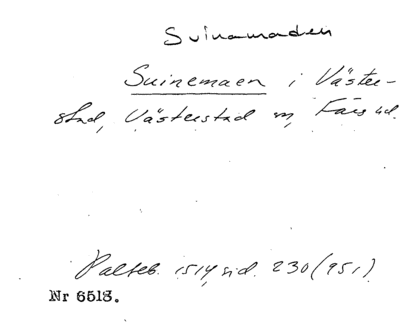 Svinamaden
Svinemaen i Väster-
stad, Västerstad sn, Färs hd.
Palteb. 1514, sid. 230 (951)
Nr 6513.